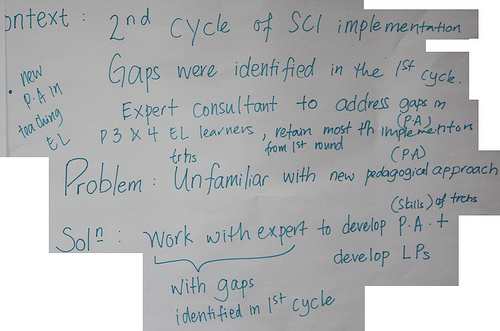 ontext : 2nd cycle of SCI implementation
Gaps were identified in the 1st cycle.
• new P.A in teaching EL
Expert consultant to address gaps in (P.A)
P3 X 4 EL learners, retain most th implementors
from 1st round
(P.A)
trhs
Problem : Unfamiliar with new pedagogical approach
(skills) of trchs
Solⁿ : Work with expert to develop P.A. +
develop LPs
with gaps
identified in 1st cycle